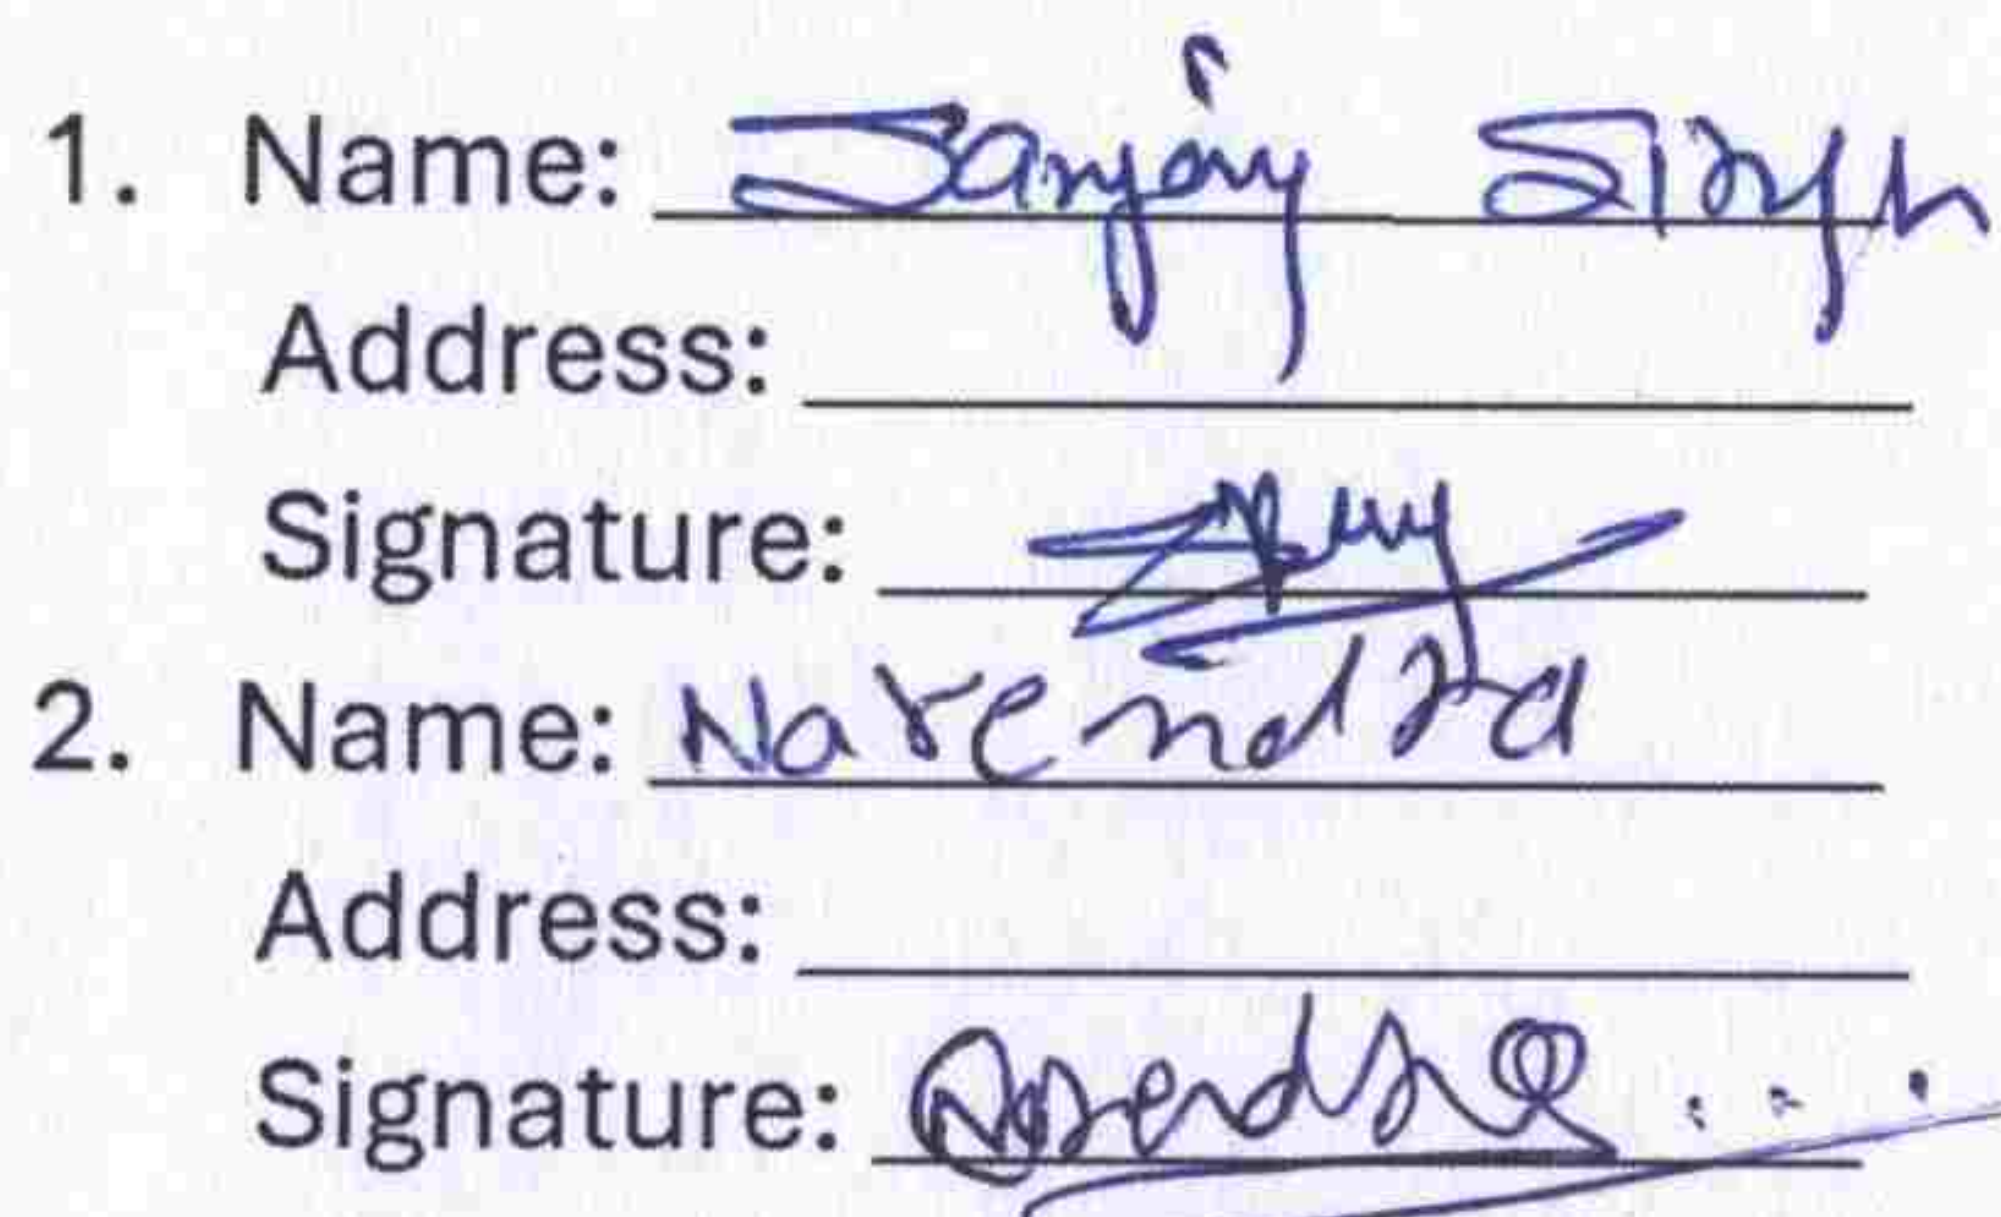 1. Name: Sanjay Singh
Address:
Signature:
2. Name: Narendra
Address:
Signature: Narendra